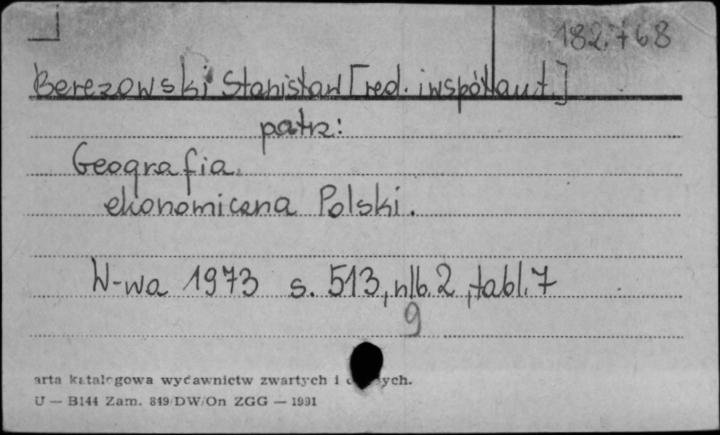 182.768
Berezowski Stanisław [red. i współaut.]
patrz:
Geografia
ekonomiczna Polski.
W-wa 1973 s. 513, nlb. 2, tabl. 7
9
arta katalogowa wydawnictw zwartych i ych.
U — B144 Zam. 849/DW/On ZGG — 1991